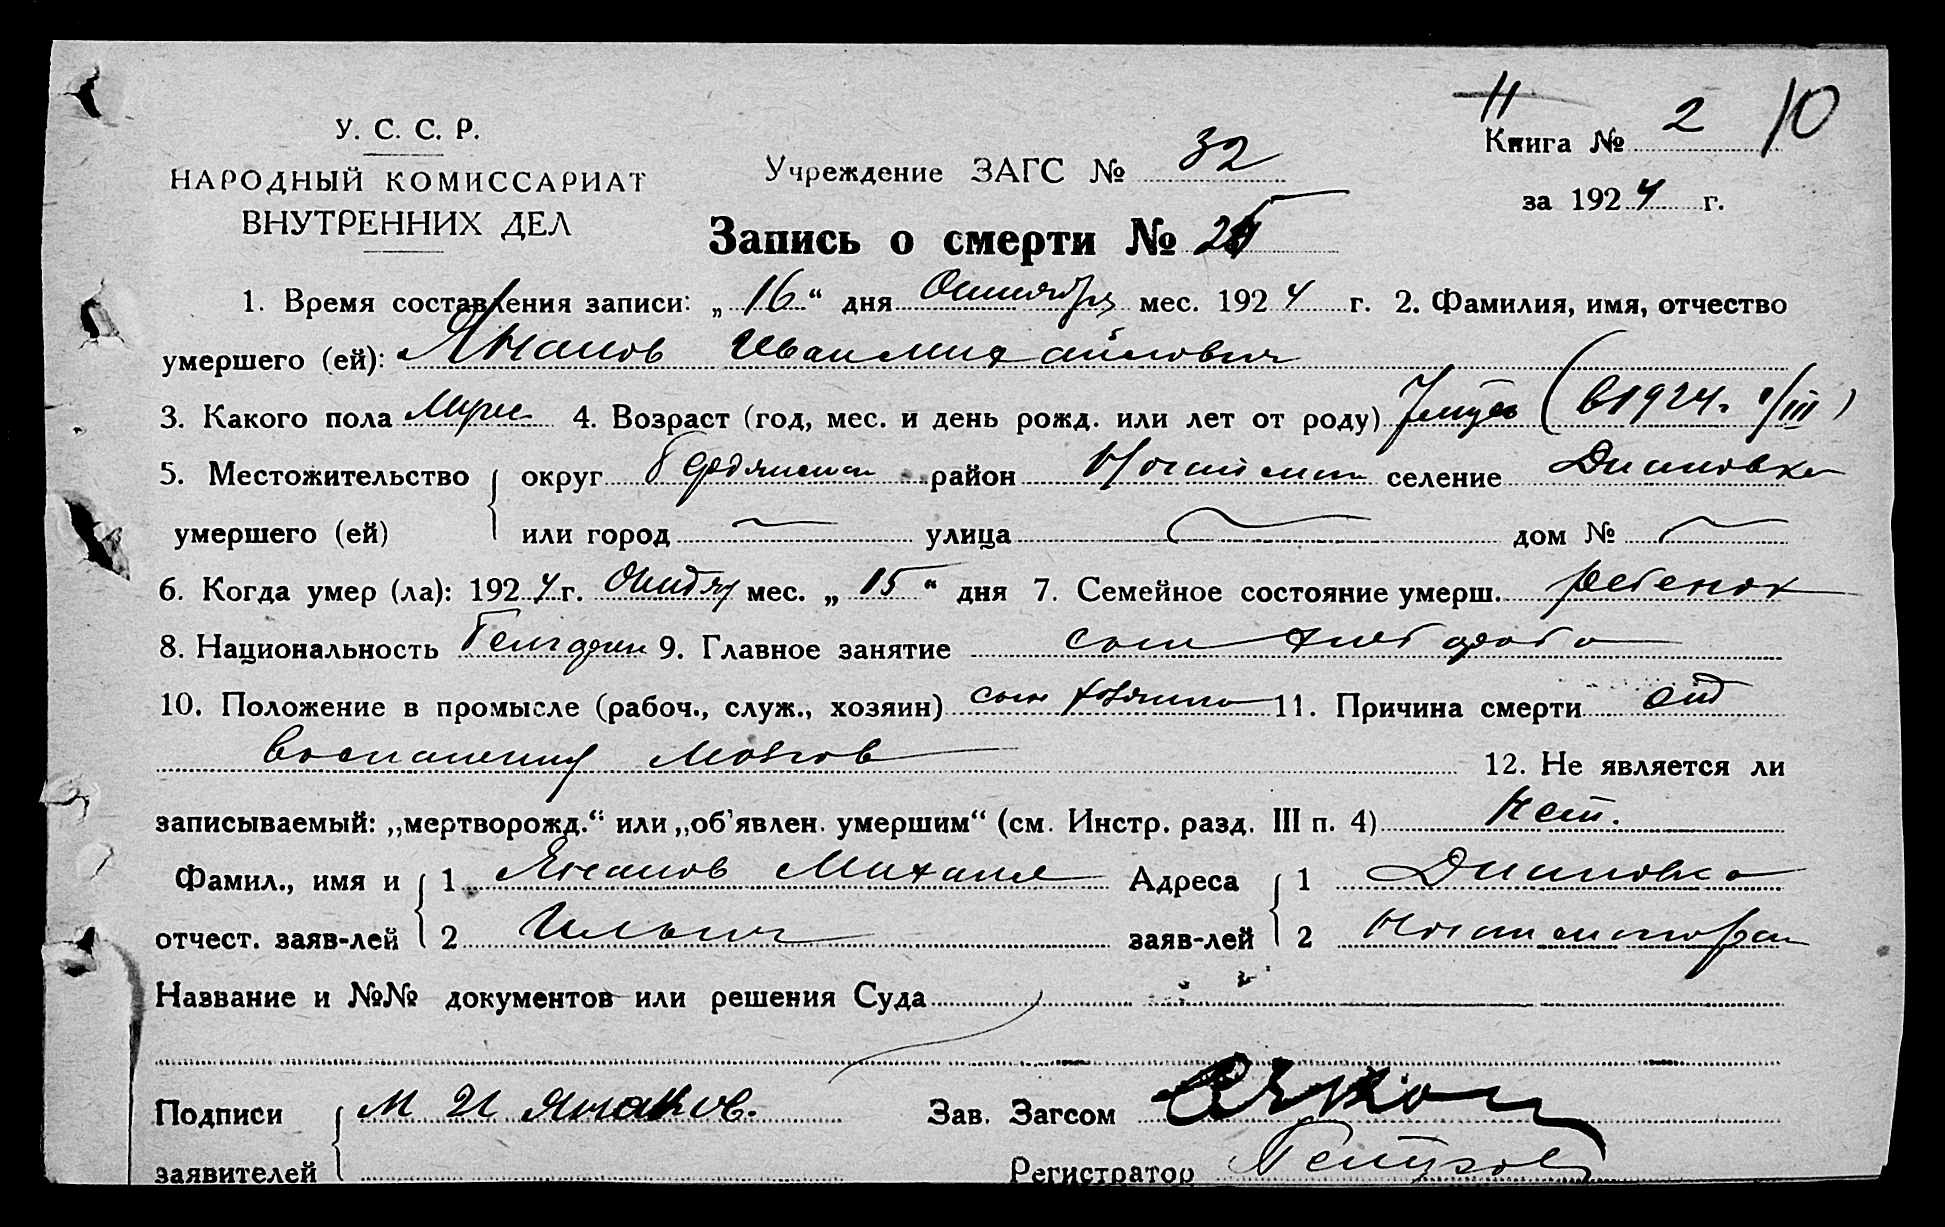 11
У. С. С. Р.
НАРОДНЫЙ КОМИССАРИАТ
ВНУТРЕННИХ ДЕЛ
Учреждение ЗАГС № 32
Книга № 2 10
за 1924 г.
Запись о смерти № 25
1. Время составления записи: „ 16 “ дня Октября мес. 1924 г. 2. Фамилия, имя, отчество
умершего (ей): Янаков Иван Михайлович
3. Какого пола Муж 4. Возраст (год, мес. и день рожд. или лет от роду) (в 1924 г. /III)
5. Местожительство округ район селение Диановка
умершего (ей) или город улица дом №
6. Когда умер (ла): 1924 г. Октяб мес. „ 15 “ дня 7. Семейное состояние умерш. ребенок
8. Национальность 9. Главное занятие сын хлебороба
10. Положение в промысле (рабоч., служ., хозяин) сын хозяина 11. Причина смерти от
воспаления мозгов 12. Не является ли
записываемый: „мертворожд.“ или „об'явлен. умершим“ (см. Инстр. разд. III п. 4) Нет.
Фамил., имя и 1 Янаков Михаил Адреса 1 Диановка
отчест. заяв-лей 2 Ильич заяв-лей 2
Название и №№ документов или решения Суда
Подписи М И Янаков. Зав. Загсом
заявителей Регистратор